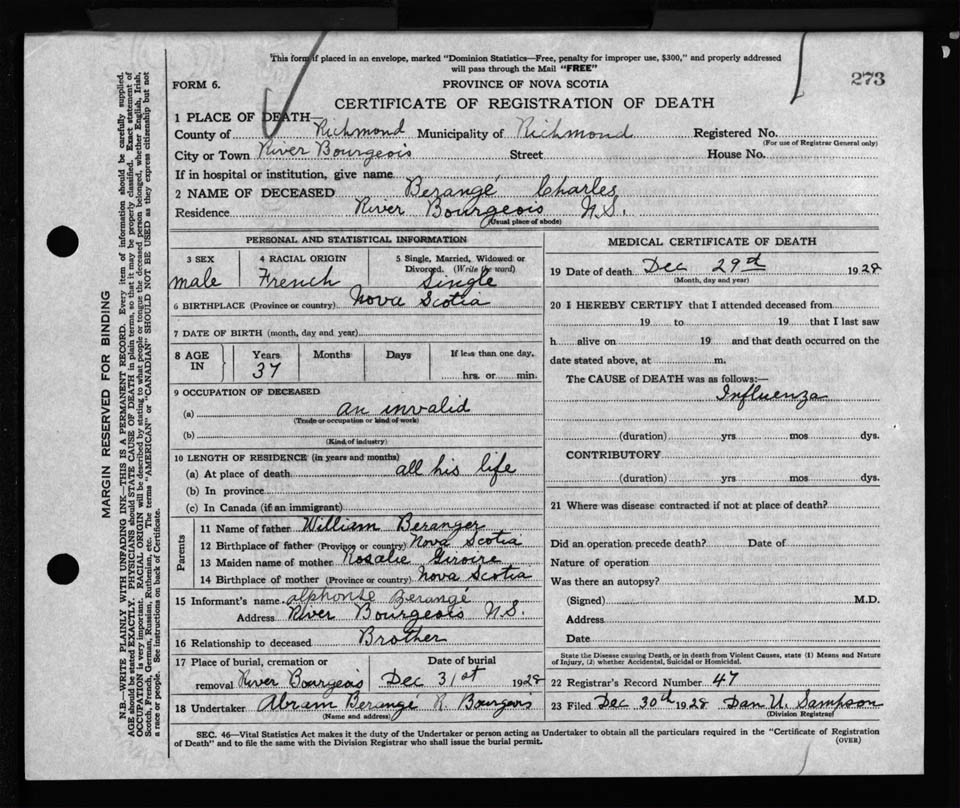 This form if placed in an envelope, marked "Dominion Statistics—Free, penalty for improper use, $300," and properly addressed
will pass through the Mail "FREE"
273
FORM 6.
PROVINCE OF NOVA SCOTIA
CERTIFICATE OF REGISTRATION OF DEATH
1 PLACE OF DEATH—
County of Richmond Municipality of Richmond Registered No.
(For use of Registrar General only)
City or Town River Bourgeois Street House No.
If in hospital or institution, give name
2 NAME OF DECEASED Berangé Charles
Residence River Bourgeois N.S.
(Usual place of abode)
PERSONAL AND STATISTICAL INFORMATION
3 SEX 4 RACIAL ORIGIN 5 Single, Married, Widowed or
Divorced. (Write the word)
male French Single
6 BIRTHPLACE (Province or country) Nova Scotia
7 DATE OF BIRTH (month, day and year)
8 AGE IN Years Months Days If less than one day,
37 hrs. or min.
9 OCCUPATION OF DECEASED
(a) an invalid
(Trade or occupation or kind of work)
(b)
(Kind of industry)
10 LENGTH OF RESIDENCE (in years and months)
(a) At place of death all his life
(b) In province
(c) In Canada (if an immigrant)
Parents
11 Name of father William Beranger
12 Birthplace of father (Province or country) Nova Scotia
13 Maiden name of mother Rosalie Giroire
14 Birthplace of mother (Province or country) Nova Scotia
15 Informant's name alphonse Berangé
Address River Bourgeois N.S.
16 Relationship to deceased Brother
17 Place of burial, cremation or Date of burial
removal River Bourgeois Dec 31st 1928
18 Undertaker Abram Berangé R. Bourgois
(Name and address)
MEDICAL CERTIFICATE OF DEATH
19 Date of death Dec 29rd 1928
(Month, day and year)
20 I HEREBY CERTIFY that I attended deceased from
19 to 19 that I last saw
h alive on 19 and that death occurred on the
date stated above, at m.
The CAUSE of DEATH was as follows:—
Influenza
(duration) yrs mos dys.
CONTRIBUTORY
(duration) yrs mos dys.
21 Where was disease contracted if not at place of death?
Did an operation precede death? Date of
Nature of operation
Was there an autopsy?
(Signed) M.D.
Address
Date
State the Disease causing Death, or in death from Violent Causes, state (1) Means and Nature
of Injury, (2) whether Accidental, Suicidal or Homicidal.
22 Registrar's Record Number 47
23 Filed Dec 30th 1928 Dan U. Sampson
(Division Registrar)
SEC. 46—Vital Statistics Act makes it the duty of the Undertaker or person acting as Undertaker to obtain all the particulars required in the "Certificate of Registration
of Death" and to file the same with the Division Registrar who shall issue the burial permit.
(OVER)
MARGIN RESERVED FOR BINDING
N.B.—WRITE PLAINLY WITH UNFADING INK—THIS IS A PERMANENT RECORD. Every item of information should be carefully supplied.
AGE should be stated EXACTLY. PHYSICIANS should STATE CAUSE OF DEATH in plain terms, so that it may be properly classified. Exact statement of
OCCUPATION is very important. RACIAL ORIGIN will be described by stating to what people or tongue the deceased person belonged, whether English, Irish,
Scotch, French, German, Russian, Ruthenian, etc. The terms "AMERICAN" or "CANADIAN" SHOULD NOT BE USED as they express citizenship but not
a race or people. See instructions on back of Certificate.